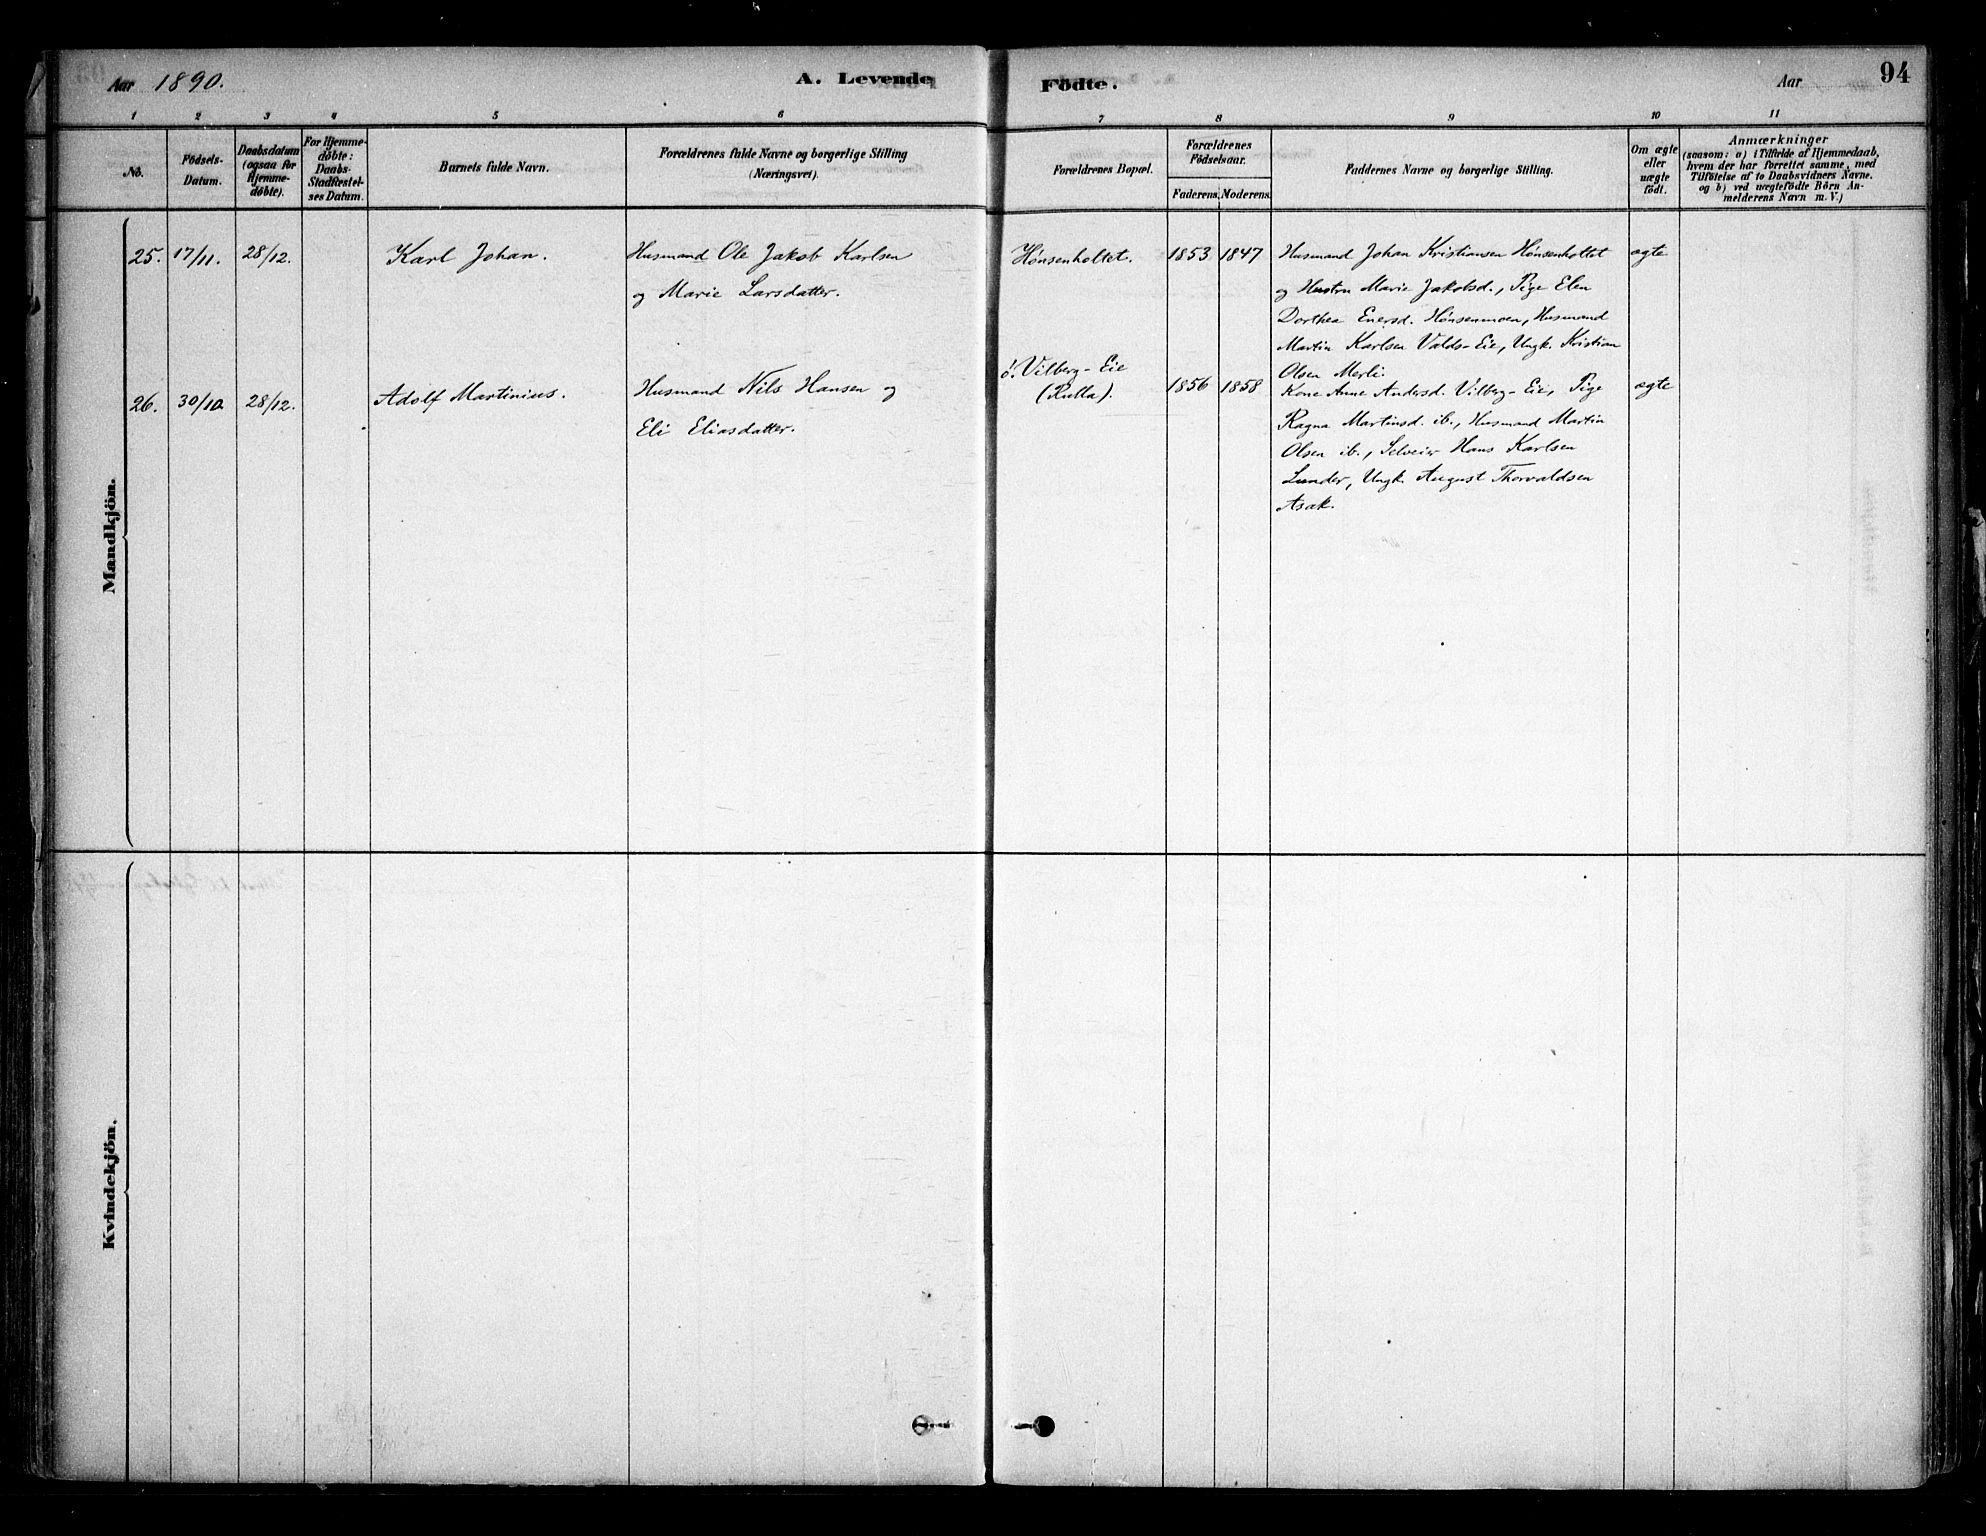 Aar 1890.
A. Levende
Födte.
Aar
94
1 2 3 4 5 6 7 8 9 10 11
No.
Födsels-
Datum.
Daabsdatum
(ogsaa for
Hjemme-
döbte).
For Hjemme-
döbte:
Daabs-
Stadfæstel-
ses Datum.
Barnets fulde Navn.
Forældrenes fulde Navne og borgerlige Stilling
(Næringsvei).
Forældrenes Bopæl.
Forældrenes
Födselsaar.
Faderens. Moderens.
Faddernes Navne og borgerlige Stilling.
Om ægte
eller
uægte
födt.
Anmærkninger
(saasom: a) i Tilfælde af Hjemmedaab,
hvem der har forrettet samme, med
Tilföielse af to Daabsvidners Navne.
og b) ved uægtefödte Börn An-
melderens Navn m. V.)
Mandkjön.
25. 17/11. 28/12. Karl Johan.
Husmand Ole Jakob Karlsen
og Marie Larsdatter.
Hønsenholtet. 1853 1847
Husmand Johan Kristiansen Hønsenholtet
og Hustru Marie Jakobsd., Pige Elen
Dorthea Enersd. Hønsenmoen, Husmand
Martin Karlsen Valds-Eie, Ungk. Kristian
Olsen Merli.
ægte
26. 30/10. 28/12. Adolf Martinius.
Husmand Nils Hansen og
Eli Eliasdatter.
ö. Vilberg-Eie
(Rulla). 1856 1858
Kone Anne Andersd. Vilberg-Eie, Pige
Ragna Martinsd. ib., Husmand Martin
Olsen ib., Selveier Hans Karlsen
Lunder, Ungk. August Thorvaldsen
Asak.
ægte
Kvindekjön.